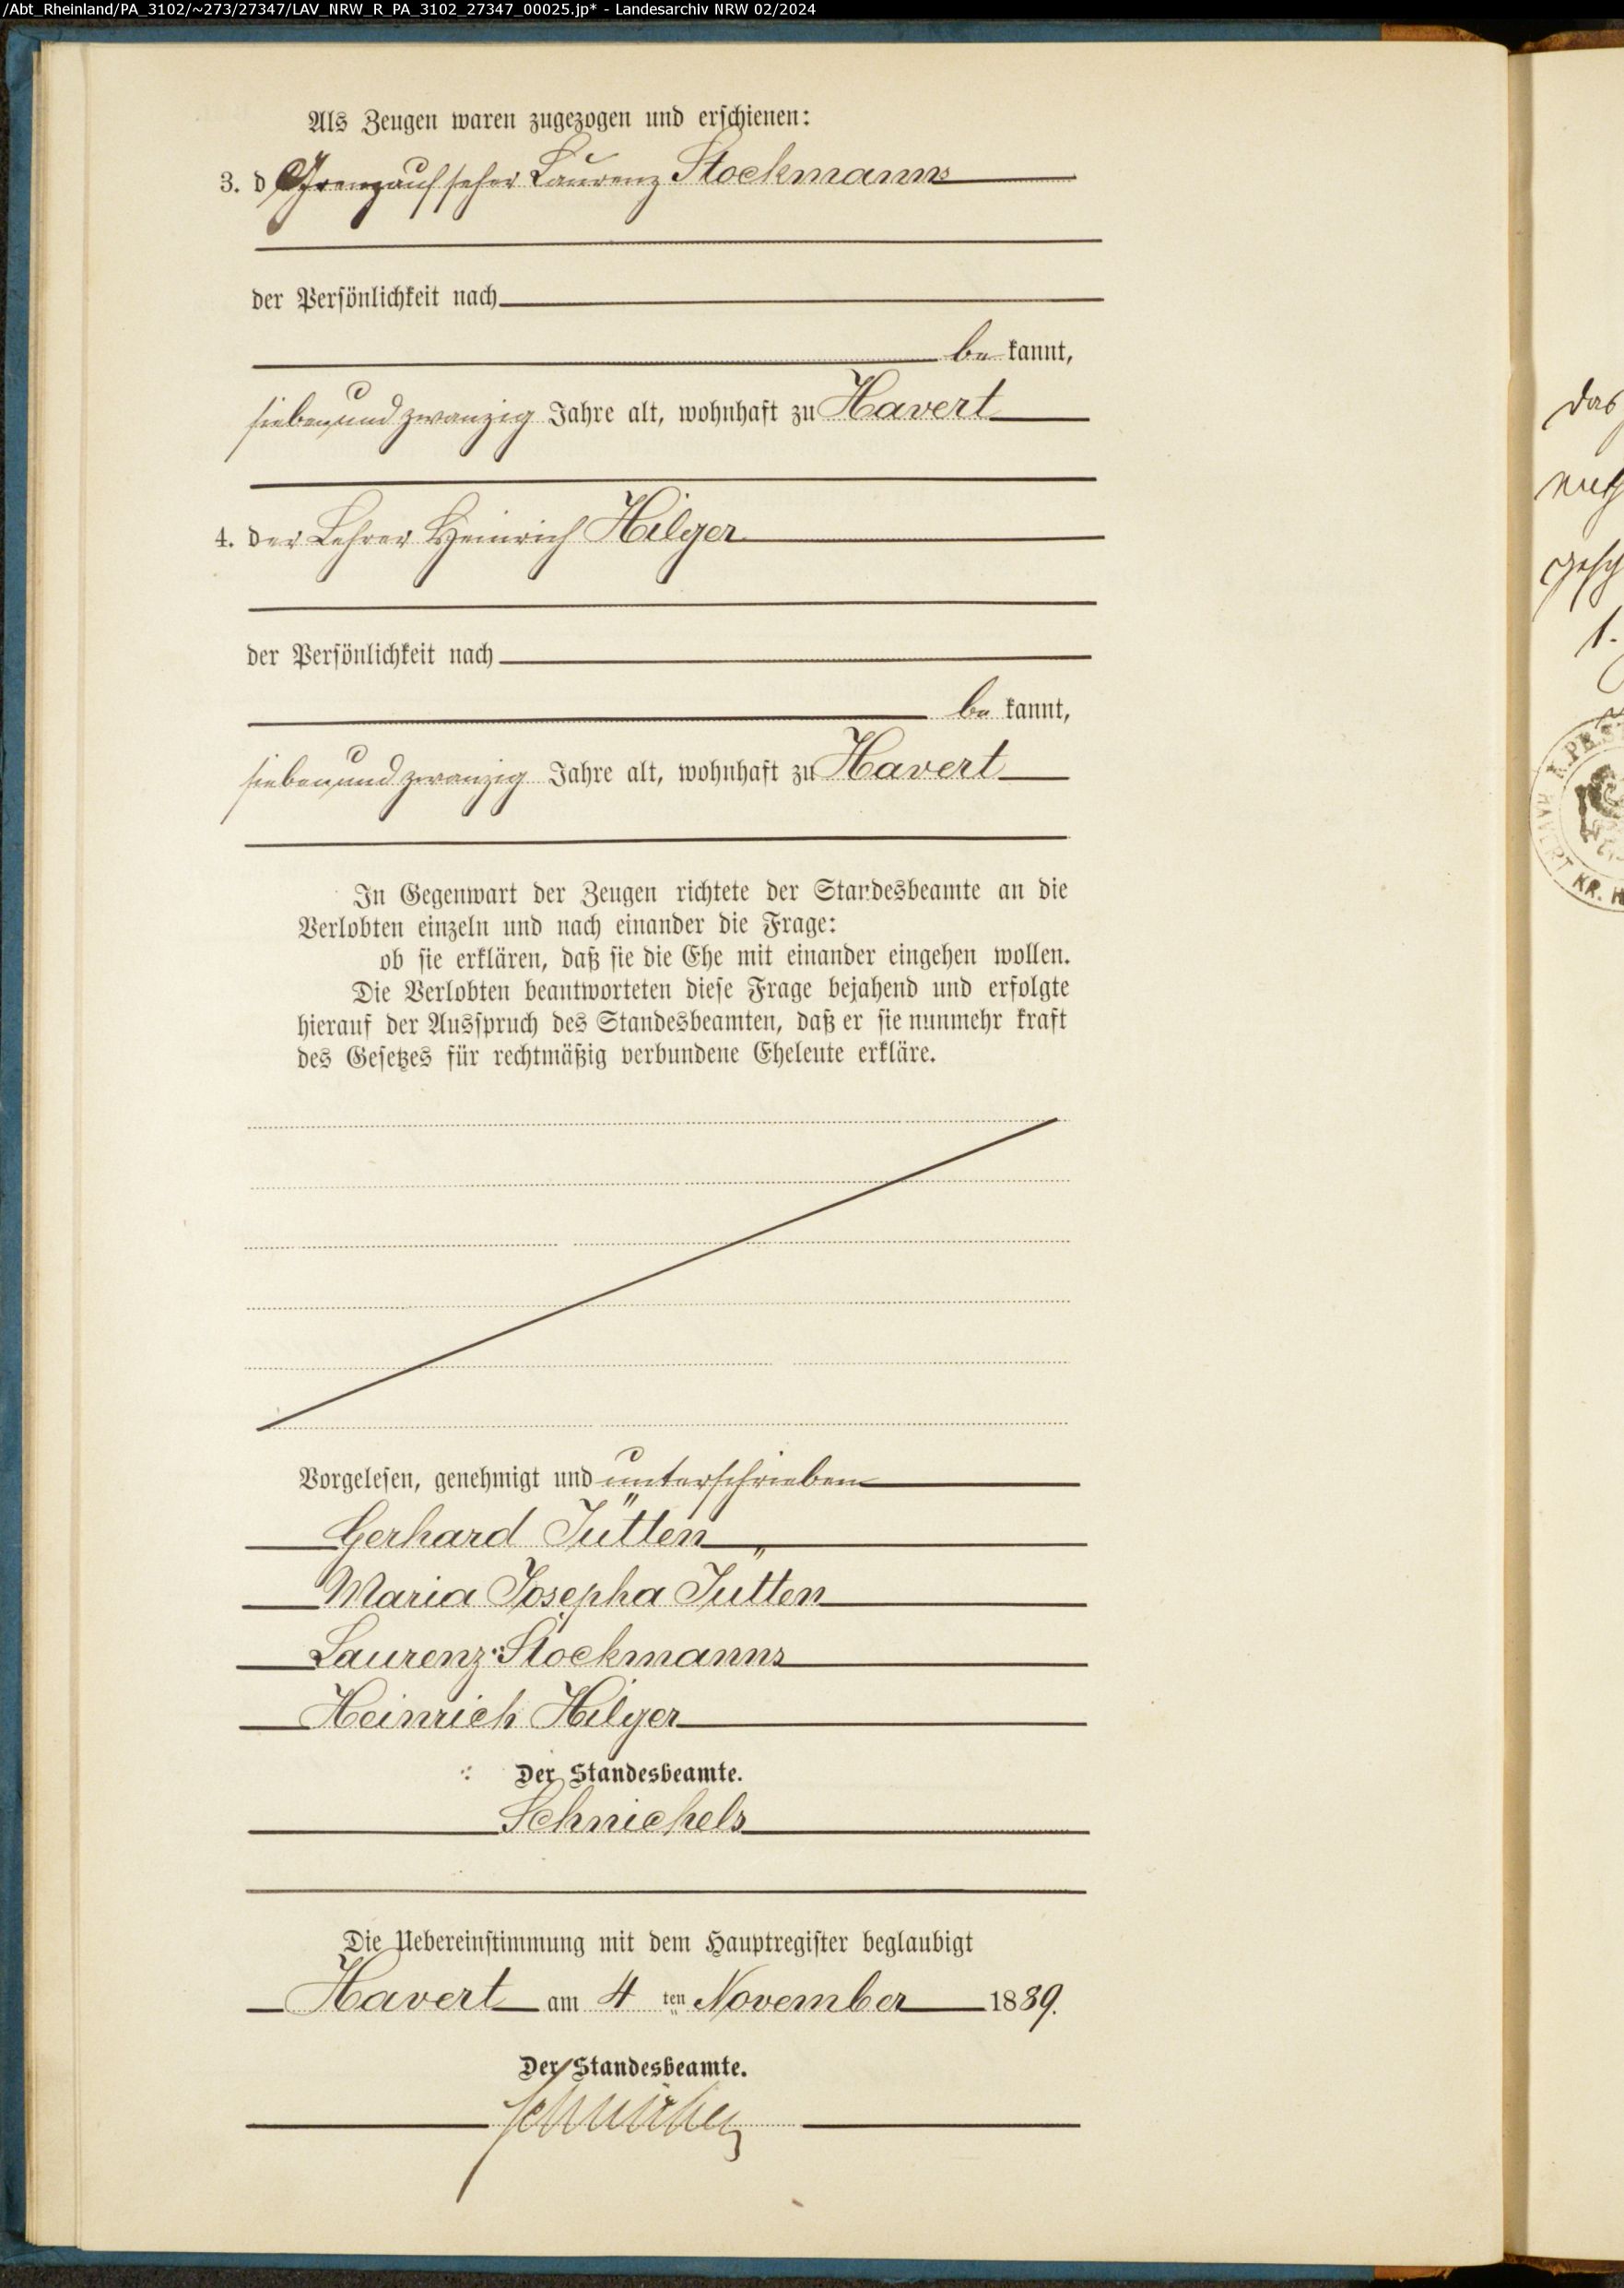 /Abt_Rheinland/PA_3102/~273/27347/LAV_NRW_R_PA_3102_27347_00025.jp* - Landesarchiv NRW 02/2024
Als Zeugen waren zugezogen und erschienen:
3. d Grenzaufseher Laurenz Stockmanns
der Persönlichkeit nach
be kannt,
siebenundzwanzig Jahre alt, wohnhaft zu Havert
4. der Lehrer Heinrich Hilger
der Persönlichkeit nach
be kannt,
siebenundzwanzig Jahre alt, wohnhaft zu Havert
In Gegenwart der Zeugen richtete der Standesbeamte an die
Verlobten einzeln und nach einander die Frage:
ob sie erklären, daß sie die Ehe mit einander eingehen wollen.
Die Verlobten beantworteten diese Frage bejahend und erfolgte
hierauf der Ausspruch des Standesbeamten, daß er sie nunmehr kraft
des Gesetzes für rechtmäßig verbundene Eheleute erkläre.
Vorgelesen, genehmigt und unterschrieben
Gerhard Jütten
Maria Josepha Jütten
Laurenz Stockmanns
Heinrich Hilger
Der Standesbeamte.
Schmichels
Die Uebereinstimmung mit dem Hauptregister beglaubigt
Havert am 4 ten November 1889.
Der Standesbeamte.
das
1.
HAVERT KR. H